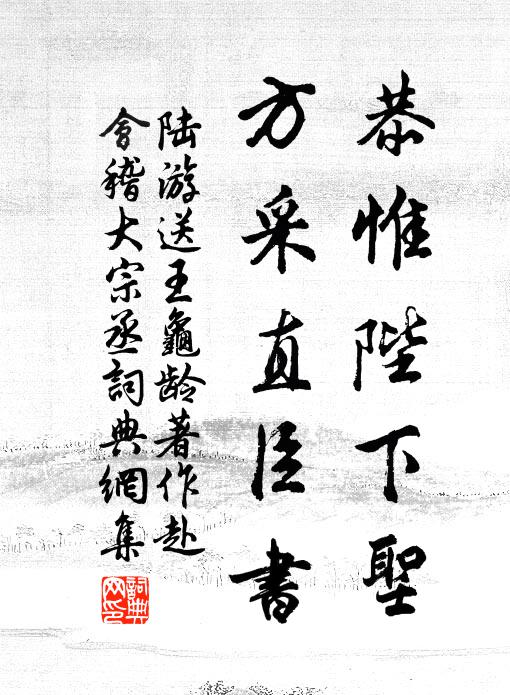 恭惟陛下聖
方采直臣書
陆游送王龜龄著作赴
會稽大宗丞詞典網集
詞典網印